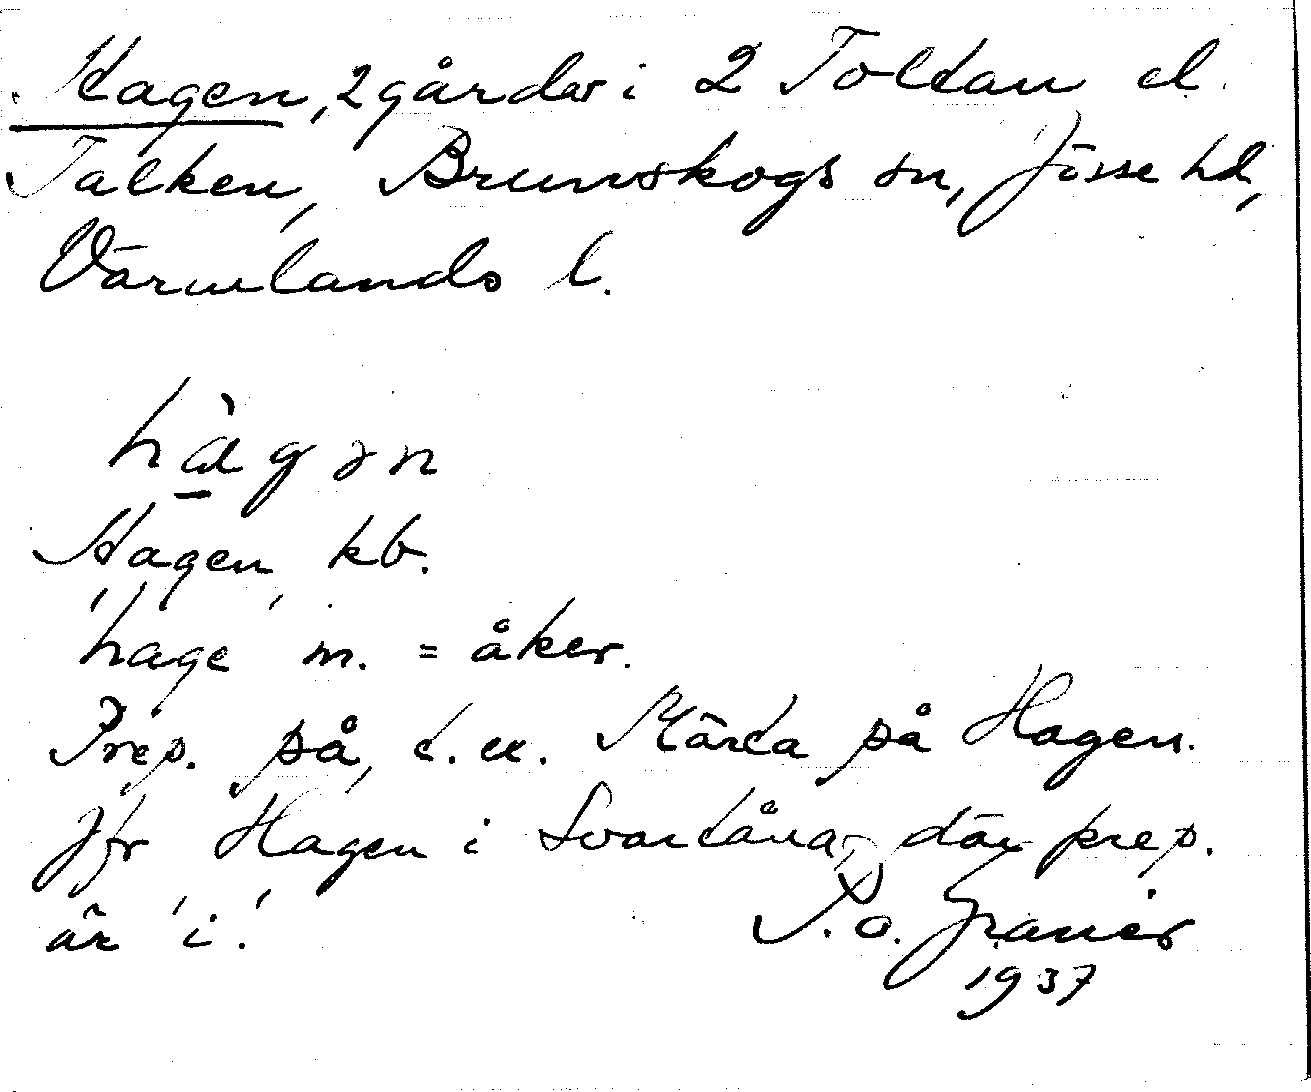 Hagen, 2 gårdar i 2 Toltan el.
Talken, Brunskogs sn, Jösse hd,
Värmlands l.
hàgən
Hagen kb.
'hage' m. = åker.
Prep. på, t.ex. Märta på Hagen.
Jfr Hagen i Svartåna, där prep.
är 'i.'
P. O. Granér
1937